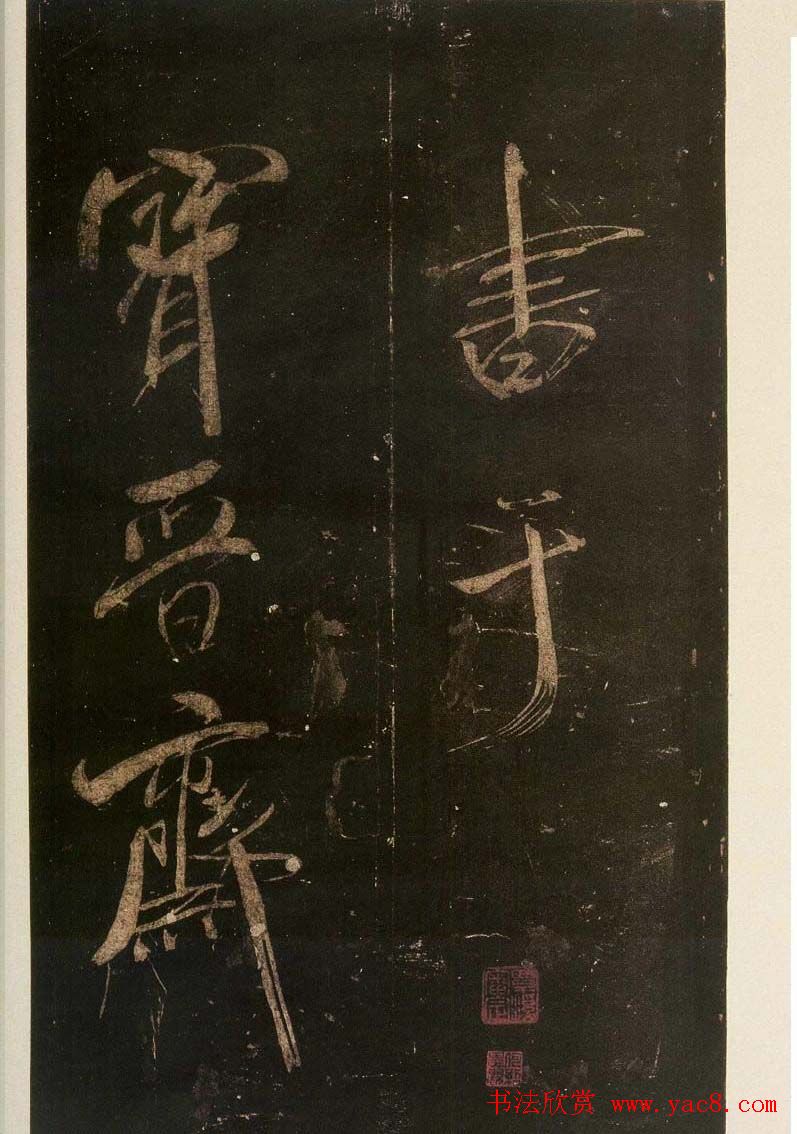 書于
寶晉齋
书法欣赏 www.yac8.com